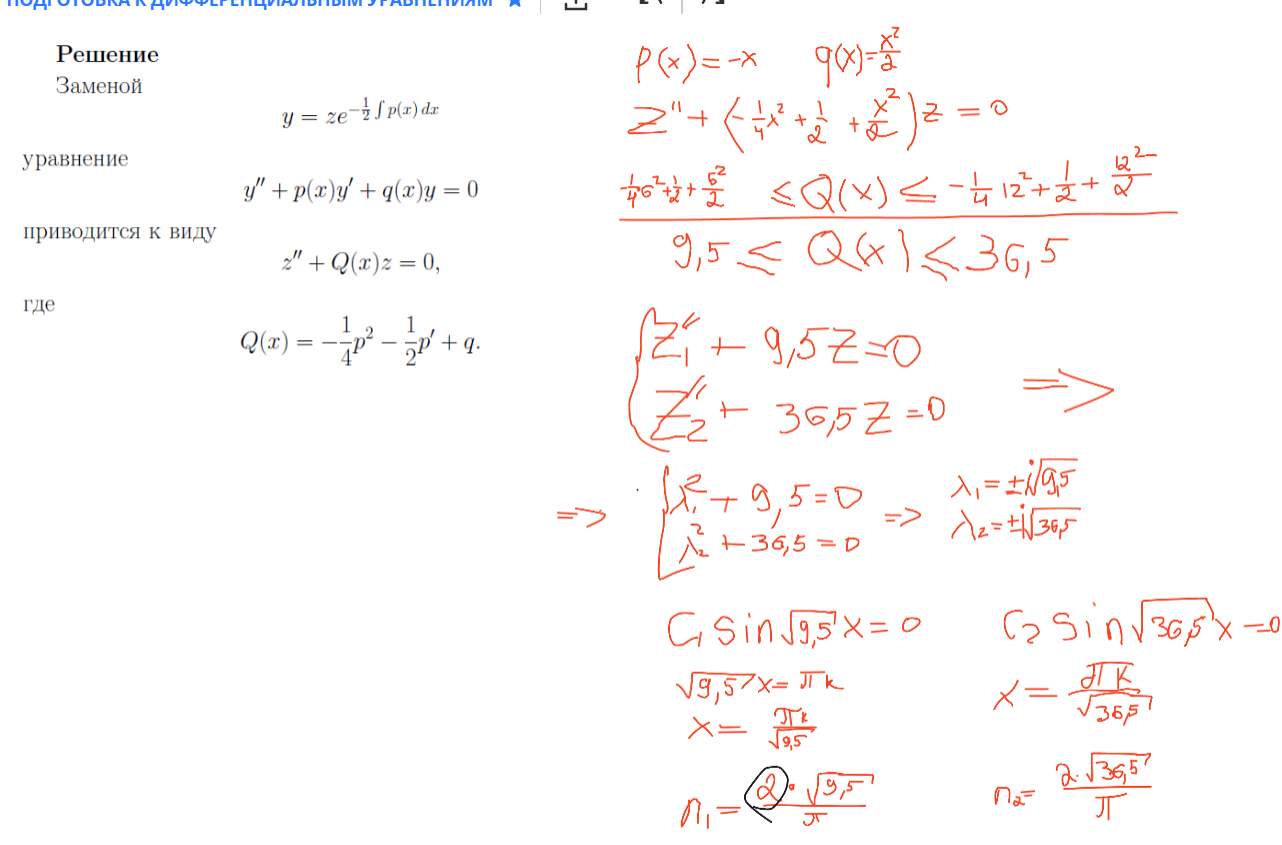 ПОДГОТОВКА К ДИФФЕРЕНЦИАЛЬНЫМ УРАВНЕНИЯМ
Решение
Заменой
y = ze^{-\frac{1}{2}∫p(x) dx}
уравнение
y'' + p(x)y' + q(x)y = 0
приводится к виду
z'' + Q(x)z = 0,
где
Q(x) = -\frac{1}{4}p^2 - \frac{1}{2}p' + q.
P(x) = -x q(x) = \frac{x^2}{2}
Z'' + (-\frac{1}{4}x^2 + \frac{1}{2} + \frac{x^2}{2})z = 0
-\frac{1}{4}6^2 + \frac{1}{2} + \frac{6^2}{2} ≤ Q(x) ≤ -\frac{1}{4}12^2 + \frac{1}{2} + \frac{12^2}{2}
9,5 ≤ Q(x) ≤ 36,5
Z_1'' + 9,5Z = 0
Z_2'' + 36,5Z = 0 =>
=> λ_1^2 + 9,5 = 0 => λ_1 = ±i√9,5
λ_2^2 + 36,5 = 0 λ_2 = ±i√36,5
C_1 sin√9,5 x = 0 C_2 sin√36,5 x = 0
√9,5 x = πk x = \frac{πk}{√36,5}
x = \frac{πk}{√9,5}
n_1 = \frac{2·√9,5}{π} n_2 = \frac{2·√36,5}{π}